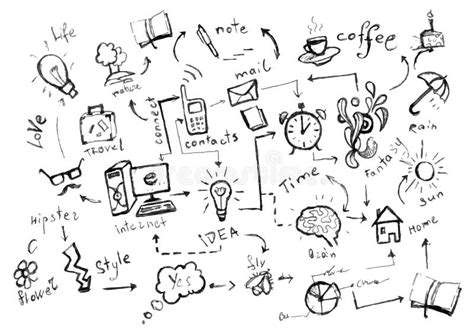 Life
note
coffee
mail
nature
connect
contacts
Love
Travel
Rain
Fantasy
Time
Sun
Hipster
internet
iDEA
Brain
Home
flower
Style
Yes
fly